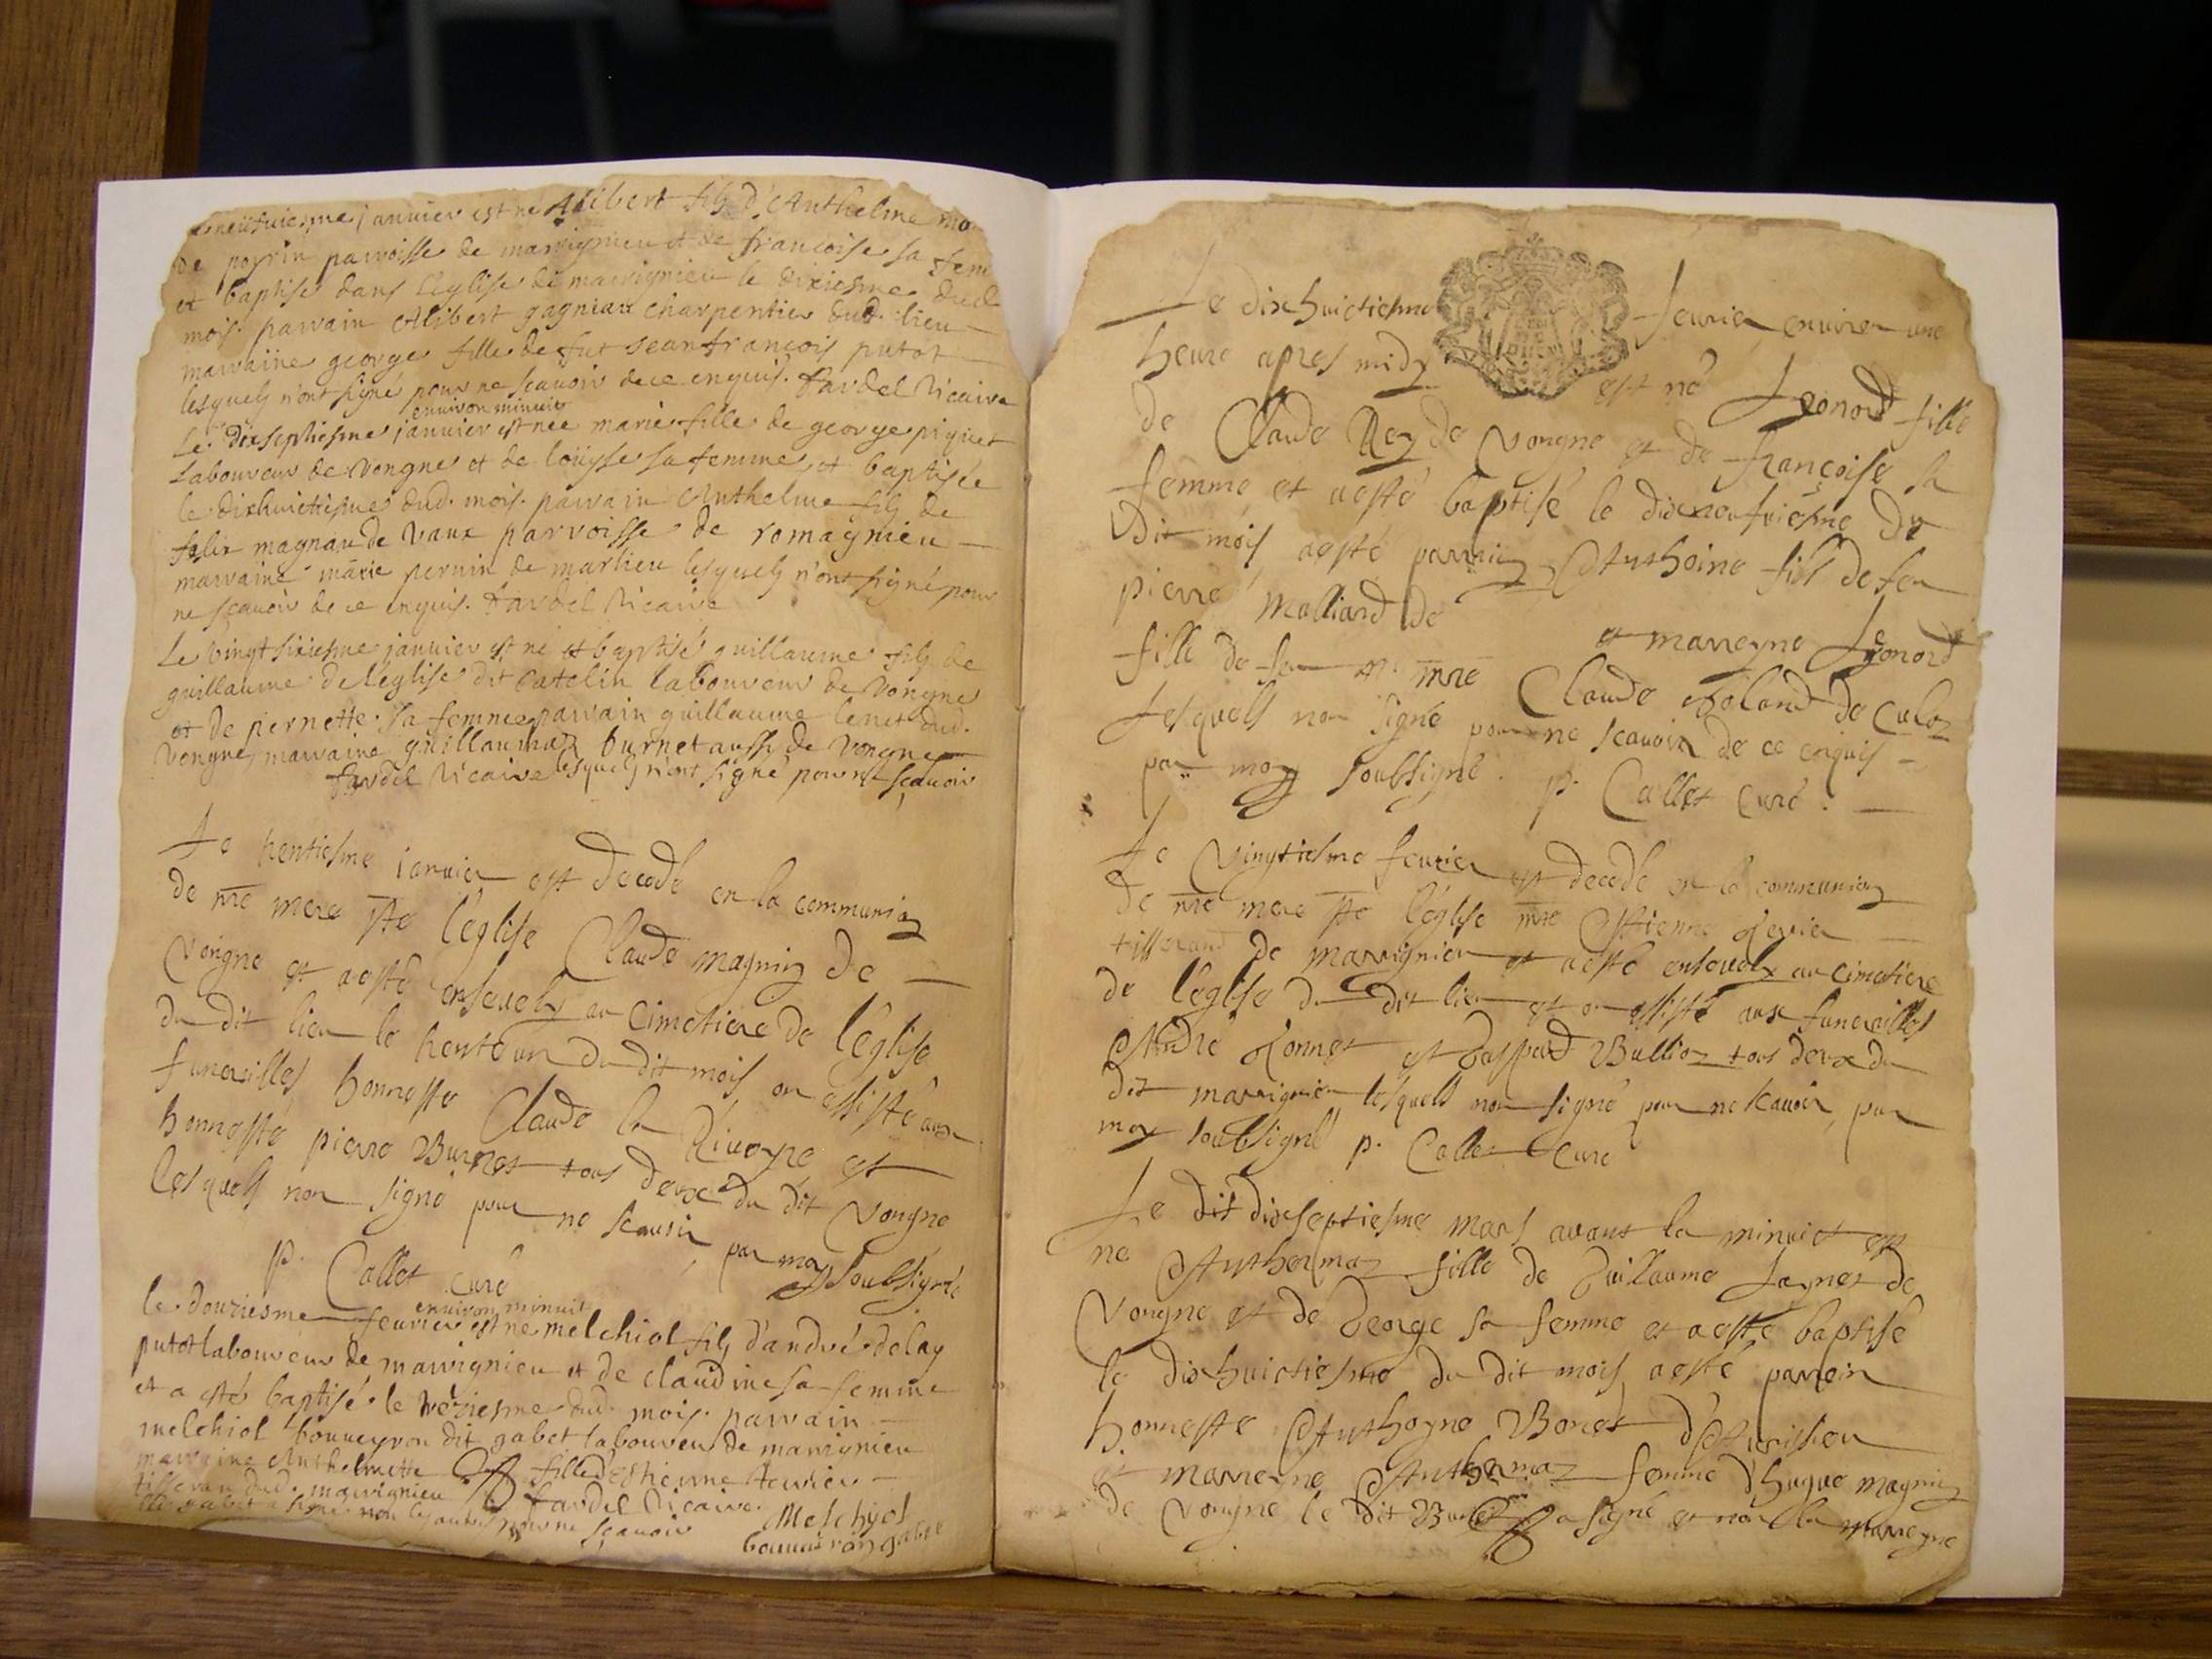 neufuiesme januier est né Alibert fils d'Anthelme mo
de poyrin parroisse de marrignieu et de francoise sa fem
et baptisé dans l'eglise de marrignieu le dixiesme dud.
mois. parrain Alibert gagniau charpentier dud. lieu —
marraine george fille de fut jean françois putot —
lesquels n'ont signé pour ne scauoir de ce enquis. fardel vicaire
enuiron minuit
Le dixseptiesme januier est née marie fille de george piquet
Laboureur de vongnes et de loüyse sa femme, et baptisée
le dixhuictiesme dud. mois. parrain Anthelme fils de
felix magnan de vaux parroisse de romagnieu —
marraine marie pernin de marlieu lesquels n'ont signé pour
ne scauoir de ce enquis. fardel vicaire
Le vingtsixiesme januier est né et baptisé guillaume fils de
guillaume de l'eglise dit catelin laboureur de vongnes
et de pernette sa femme, parrain guillaume dud.
vongne, marraine guillaumaz burnet aussi de vongne
fardel vicaire lesquels n'ont signé pour ne scauoir
Le trentiesme januier est decedé en la communion
de nre mere ste l'eglise Claude magnin de —
Vongne et a esté ensevely au cimetiere de l'eglise
du dit lieu le trenteun du dit mois, on assisté aux
funerailles honneste Claude la Riuoyre et
honneste pierre Burnet tous deux du dit Vongne
lesquels non signé pour ne scauoir, par moy soubsigné
p. Collet curé
enuiron minuit
le douziesme feurier est né melchiol fils d'andré delay
putot laboureur de marrignieu et de claudine sa femme
et a esté baptisé le treziesme dud. mois. parrain —
melchiol bouueyron dit gabet laboureur de marrignieu
marraine Anthelmette fille d'Estienne teurier —
tisseran dud. marrignieu fardel vicaire.
led. gabet a signé non les autres pour ne scauoir Melchyol
bouuairon gabet
Le dixhuictiesme feurier enuiron une
heure apres midy est né Leonord fille
de Claude Rey de Vongne et de françoise sa
femme et a esté baptisé le dixneufuiesme du
dit mois, a esté parrain Anthoine fils de feu
pierre Molliard de et marreyne Leonord
fille de feu mre Claude Roland de Culoz
Lesquels non signé pour ne scauoir de ce enquis —
par moy soubsigné. p. Collet curé. —
Le Vingtiesme feurier est decedé en la communion
de nre mere ste l'eglise mre Estienne —
tisserand de marrignieu et a esté enseuely au cimetiere
de l'eglise du dit lieu et on assisté aux funerailles
André et Gaspard Bullion tous deux du
dit marrignieu lesquels non signé pour ne scauoir, par
moy soubsigné p. Collet curé
Le dit dixseptiesme mars auant la minuict est
né Anthermaz fille de Guillaume de
Vongne et de George sa femme et a esté baptisé
le dixhuictiesme du dit mois a esté parrein
honneste Anthoyne Bonet
et marreyne Anthermaz femme d'hugue magnin
de Vongne le dit a signé et non la marreyne